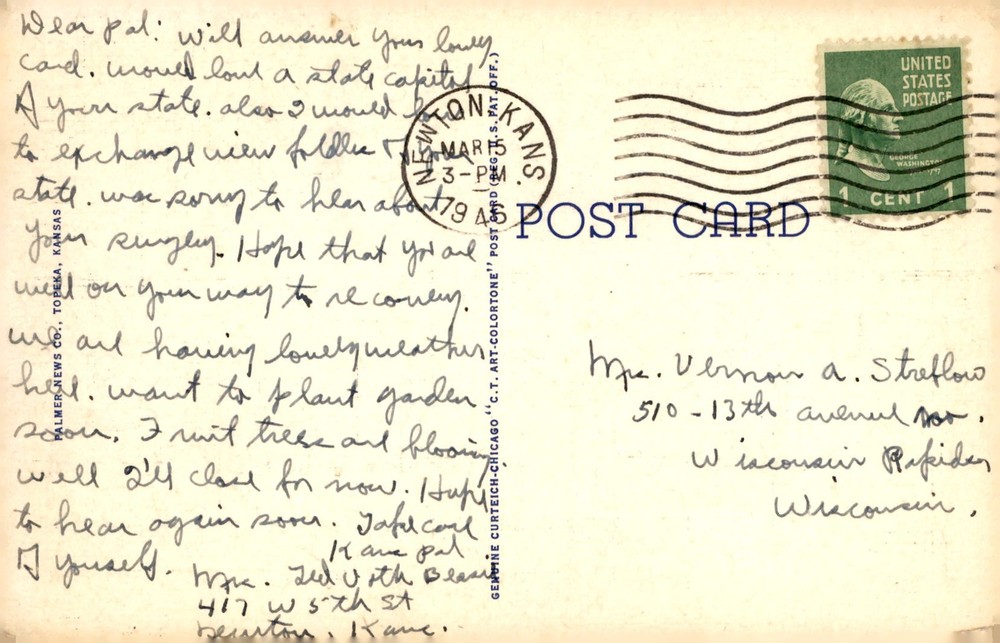 Dear Pal: Will answer your lovely
card. would love a state capitol
of your state. also I would love
to exchange view folder of your
state. was sorry to hear about
your surgery. Hope that you are
well on your way to recovery.
we are having lovely weather
here. want to plant garden
soon. Fruit trees are blooming
well I'll close for now. Hope
to hear again soon. Take care
of yourself. Kans pal
Mrs. Ted Voth
417 W 5th St
Newton, Kans.
PALMER NEWS CO., TOPEKA, KANSAS
GENUINE CURTEICH-CHICAGO "C.T. ART-COLORTONE" POST CARD (REG. U.S. PAT. OFF.)
NEWTON, KANS.
MAR 15
3-PM
1946
UNITED
STATES
POSTAGE
GEORGE
WASHINGTON
1 CENT 1
POST CARD
Mrs. Vernon A. Streblow
510-13th avenue no.
Wisconsin Rapids
Wisconsin.